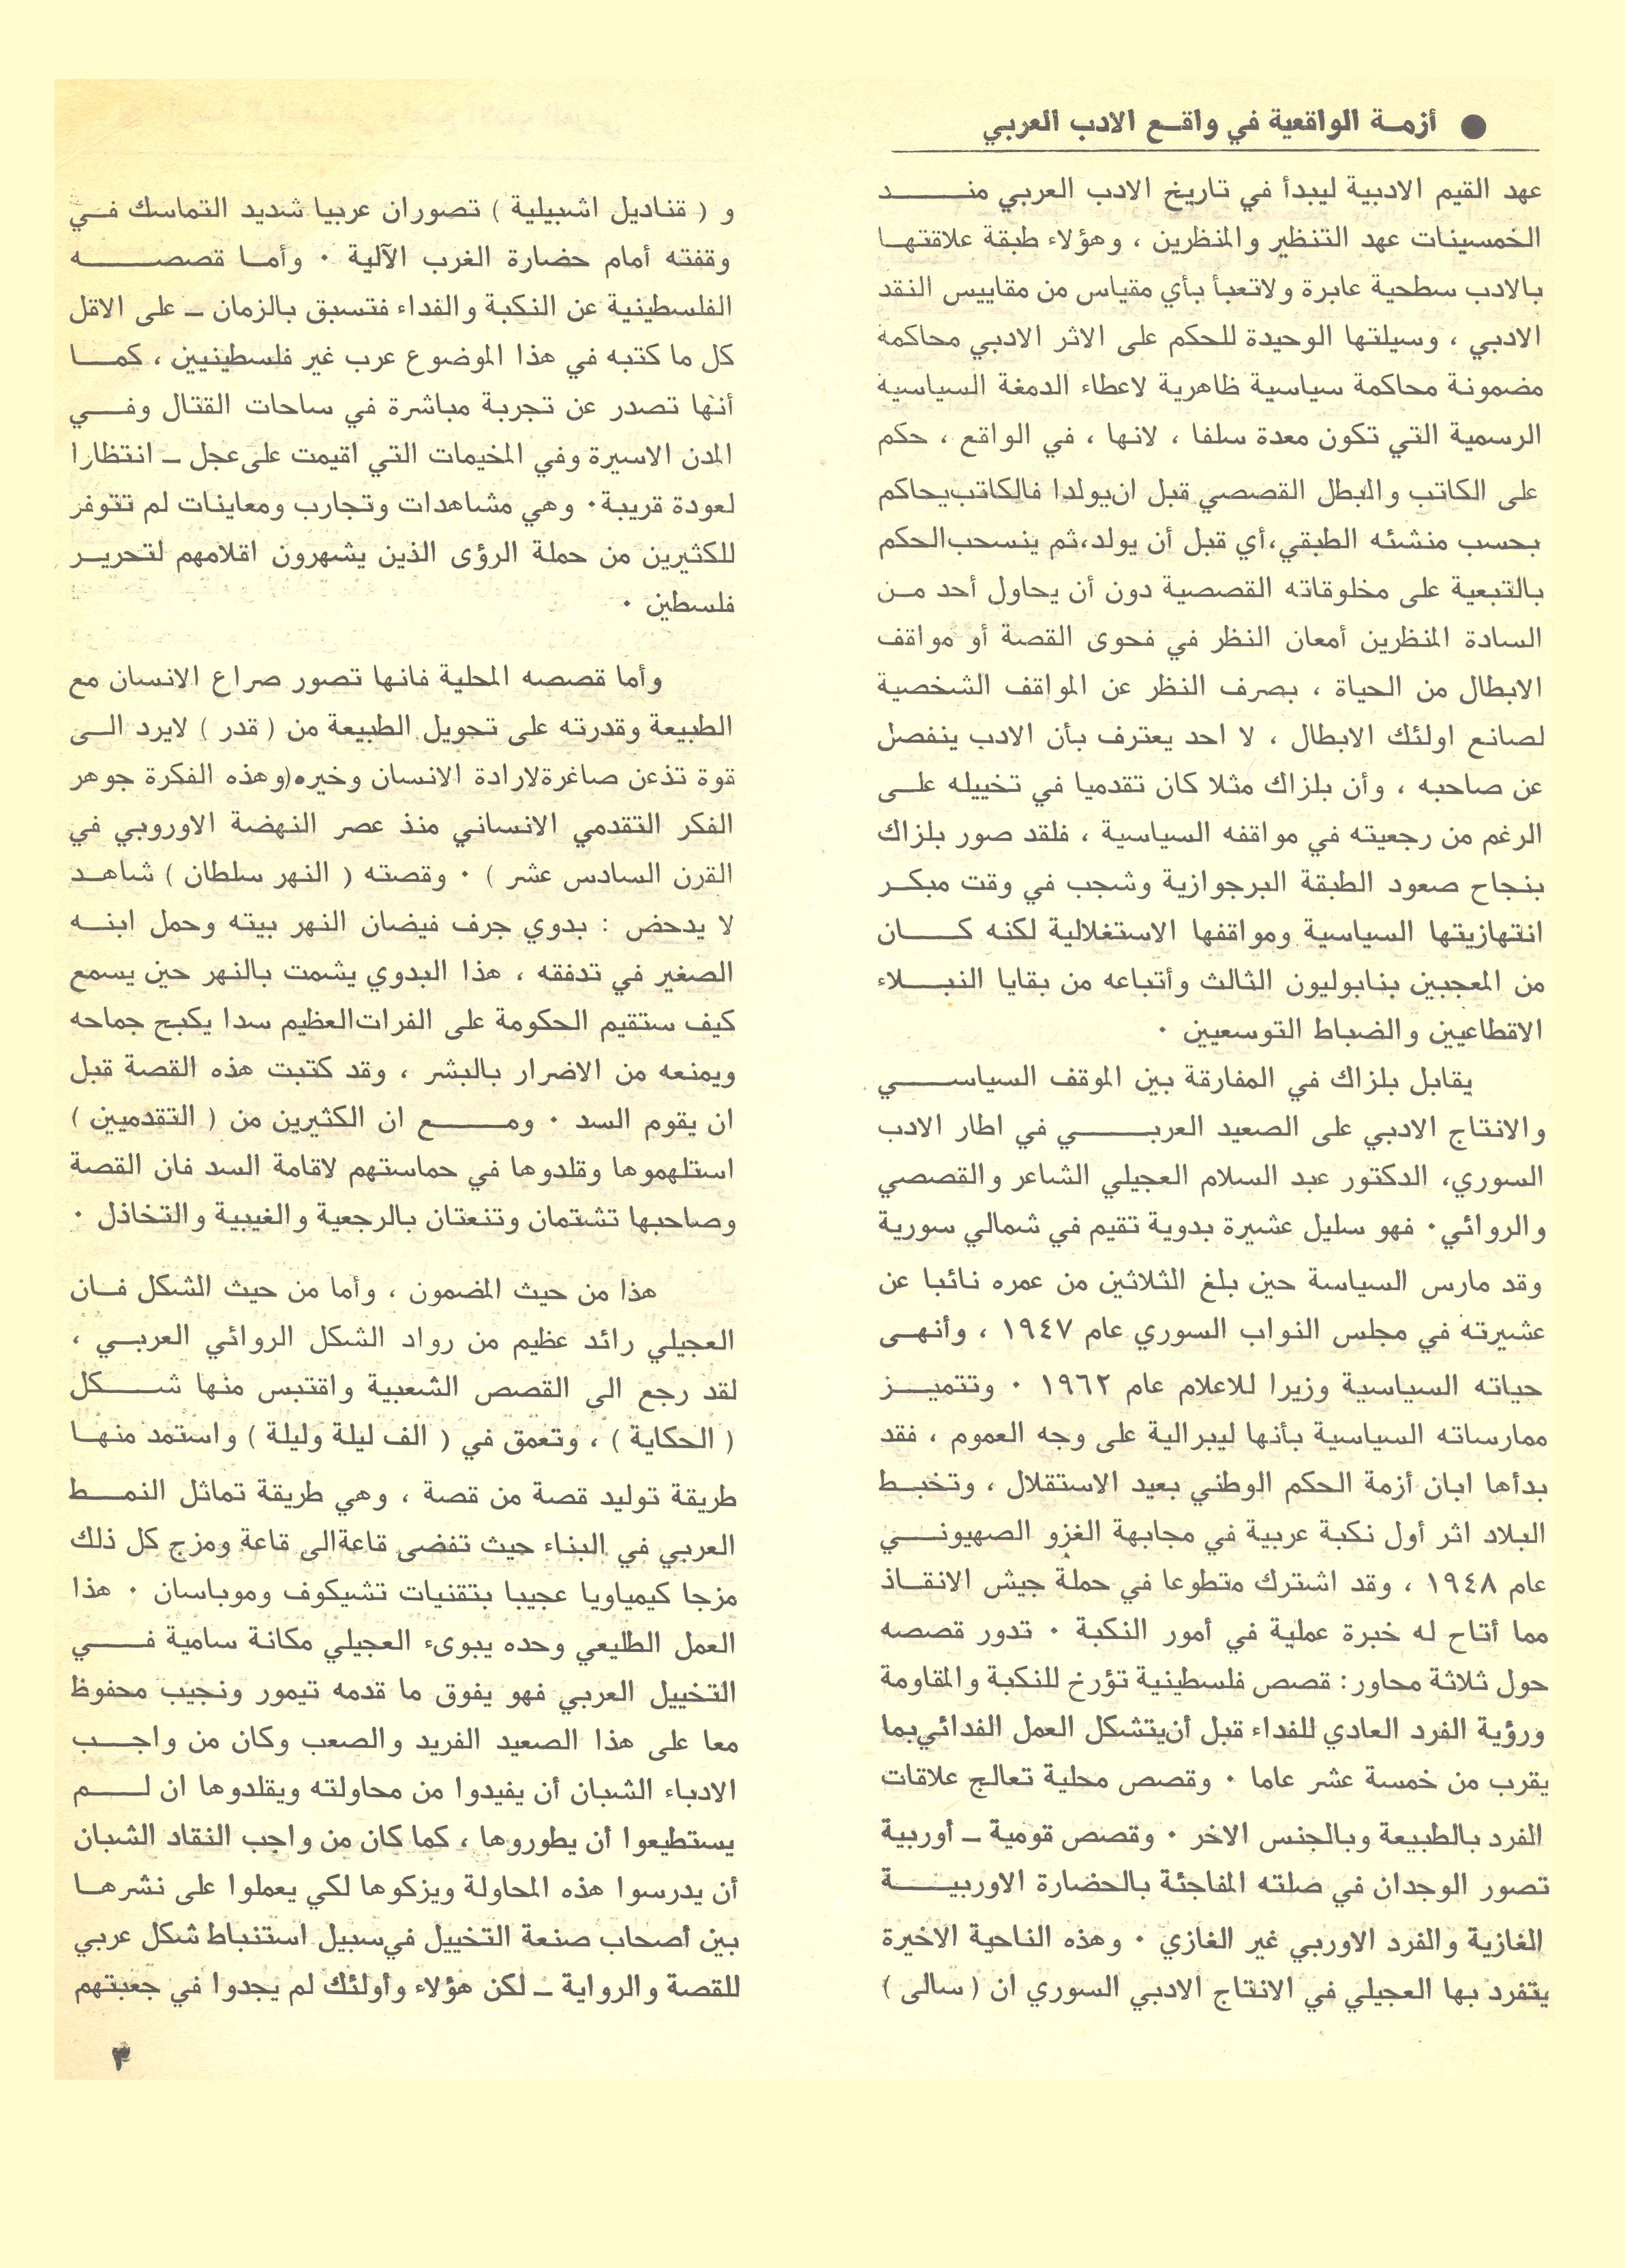 ● أزمة الواقعية في واقع الادب العربي
عهد القيم الادبية ليبدأ في تاريخ الادب العربي منذ
الخمسينات عهد التنظير والمنظرين ، وهؤلاء طبقة علاقتها
بالادب سطحية عابرة ولاتعبأ بأي مقياس من مقاييس النقد
الادبي ، وسيلتها الوحيدة للحكم على الاثر الادبي محاكمة
مضمونة محاكمة سياسية ظاهرية لاعطاء الدمغة السياسية
الرسمية التي تكون معدة سلفا ، لانها ، في الواقع ، حكم
على الكاتب والبطل القصصي قبل ان يولدا فالكاتب يحاكم
بحسب منشئه الطبقي، أي قبل أن يولد، ثم ينسحب الحكم
بالتبعية على مخلوقاته القصصية دون أن يحاول أحد من
السادة المنظرين أمعان النظر في فحوى القصة أو مواقف
الابطال من الحياة ، بصرف النظر عن المواقف الشخصية
لصانع اولئك الابطال ، لا احد يعترف بأن الادب ينفصل
عن صاحبه ، وأن بلزاك مثلا كان تقدميا في تخييله على
الرغم من رجعيته في مواقفه السياسية ، فلقد صور بلزاك
بنجاح صعود الطبقة البرجوازية وشجب في وقت مبكر
انتهازيتها السياسية ومواقفها الاستغلالية لكنه كان
من المعجبين بنابوليون الثالث وأتباعه من بقايا النبلاء
الاقطاعيين والضباط التوسعيين ٠
يقابل بلزاك في المفارقة بين الموقف السياسي
والانتاج الادبي على الصعيد العربي في اطار الادب
السوري، الدكتور عبد السلام العجيلي الشاعر والقصصي
والروائي٠ فهو سليل عشيرة بدوية تقيم في شمالي سورية
وقد مارس السياسة حين بلغ الثلاثين من عمره نائبا عن
عشيرته في مجلس النواب السوري عام ١٩٤٧ ، وأنهى
حياته السياسية وزيرا للاعلام عام ١٩٦٢ ٠ وتتميز
ممارساته السياسية بأنها ليبرالية على وجه العموم ، فقد
بدأها ابان أزمة الحكم الوطني بعيد الاستقلال ، وتخبط
البلاد اثر أول نكبة عربية في مجابهة الغزو الصهيوني
عام ١٩٤٨ ، وقد اشترك متطوعا في حملة جيش الانقاذ
مما أتاح له خبرة عملية في أمور النكبة ٠ تدور قصصه
حول ثلاثة محاور: قصص فلسطينية تؤرخ للنكبة والمقاومة
ورؤية الفرد العادي للفداء قبل أن يتشكل العمل الفدائي بما
يقرب من خمسة عشر عاما ٠ وقصص محلية تعالج علاقات
الفرد بالطبيعة وبالجنس الاخر ٠ وقصص قومية ــ أوربية
تصور الوجدان في صلته المفاجئة بالحضارة الاوربية
الغازية والفرد الاوربي غير الغازي ٠ وهذه الناحية الاخيرة
يتفرد بها العجيلي في الانتاج الادبي السوري ان ( سالى )
و ( قناديل اشبيلية ) تصوران عربيا شديد التماسك في
وقفته أمام حضارة الغرب الآلية ٠ وأما قصصه
الفلسطينية عن النكبة والفداء فتسبق بالزمان ــ على الاقل
كل ما كتبه في هذا الموضوع عرب غير فلسطينيين ، كما
أنها تصدر عن تجربة مباشرة في ساحات القتال وفي
المدن الاسيرة وفي المخيمات التي اقيمت على عجل ــ انتظارا
لعودة قريبة٠ وهي مشاهدات وتجارب ومعاينات لم تتوفر
للكثيرين من حملة الرؤى الذين يشهرون اقلامهم لتحرير
فلسطين ٠
وأما قصصه المحلية فانها تصور صراع الانسان مع
الطبيعة وقدرته على تحويل الطبيعة من ( قدر ) لايرد الى
قوة تذعن صاغرة لارادة الانسان وخيره (وهذه الفكرة جوهر
الفكر التقدمي الانساني منذ عصر النهضة الاوروبي في
القرن السادس عشر ) ٠ وقصته ( النهر سلطان ) شاهد
لا يدحض : بدوي جرف فيضان النهر بيته وحمل ابنه
الصغير في تدفقه ، هذا البدوي يشمت بالنهر حين يسمع
كيف ستقيم الحكومة على الفرات العظيم سدا يكبح جماحه
ويمنعه من الاضرار بالبشر ، وقد كتبت هذه القصة قبل
ان يقوم السد ٠ ومع ان الكثيرين من ( التقدميين )
استلهموها وقلدوها في حماستهم لاقامة السد فان القصة
وصاحبها تشتمان وتنعتان بالرجعية والغيبية والتخاذل ٠
هذا من حيث المضمون ، وأما من حيث الشكل فان
العجيلي رائد عظيم من رواد الشكل الروائي العربي ،
لقد رجع الى القصص الشعبية واقتبس منها شكل
( الحكاية ) ، وتعمق في ( الف ليلة وليلة ) واستمد منها
طريقة توليد قصة من قصة ، وهي طريقة تماثل النمط
العربي في البناء حيث تفضى قاعة الى قاعة ومزج كل ذلك
مزجا كيمياويا عجيبا بتقنيات تشيكوف وموباسان ٠ هذا
العمل الطليعي وحده يبوىء العجيلي مكانة سامية في
التخييل العربي فهو يفوق ما قدمه تيمور ونجيب محفوظ
معا على هذا الصعيد الفريد والصعب وكان من واجب
الادباء الشبان أن يفيدوا من محاولته ويقلدوها ان لم
يستطيعوا أن يطوروها ، كما كان من واجب النقاد الشبان
أن يدرسوا هذه المحاولة ويزكوها لكي يعملوا على نشرها
بين أصحاب صنعة التخييل في سبيل استنباط شكل عربي
للقصة والرواية ــ لكن هؤلاء وأولئك لم يجدوا في جعبتهم
٣